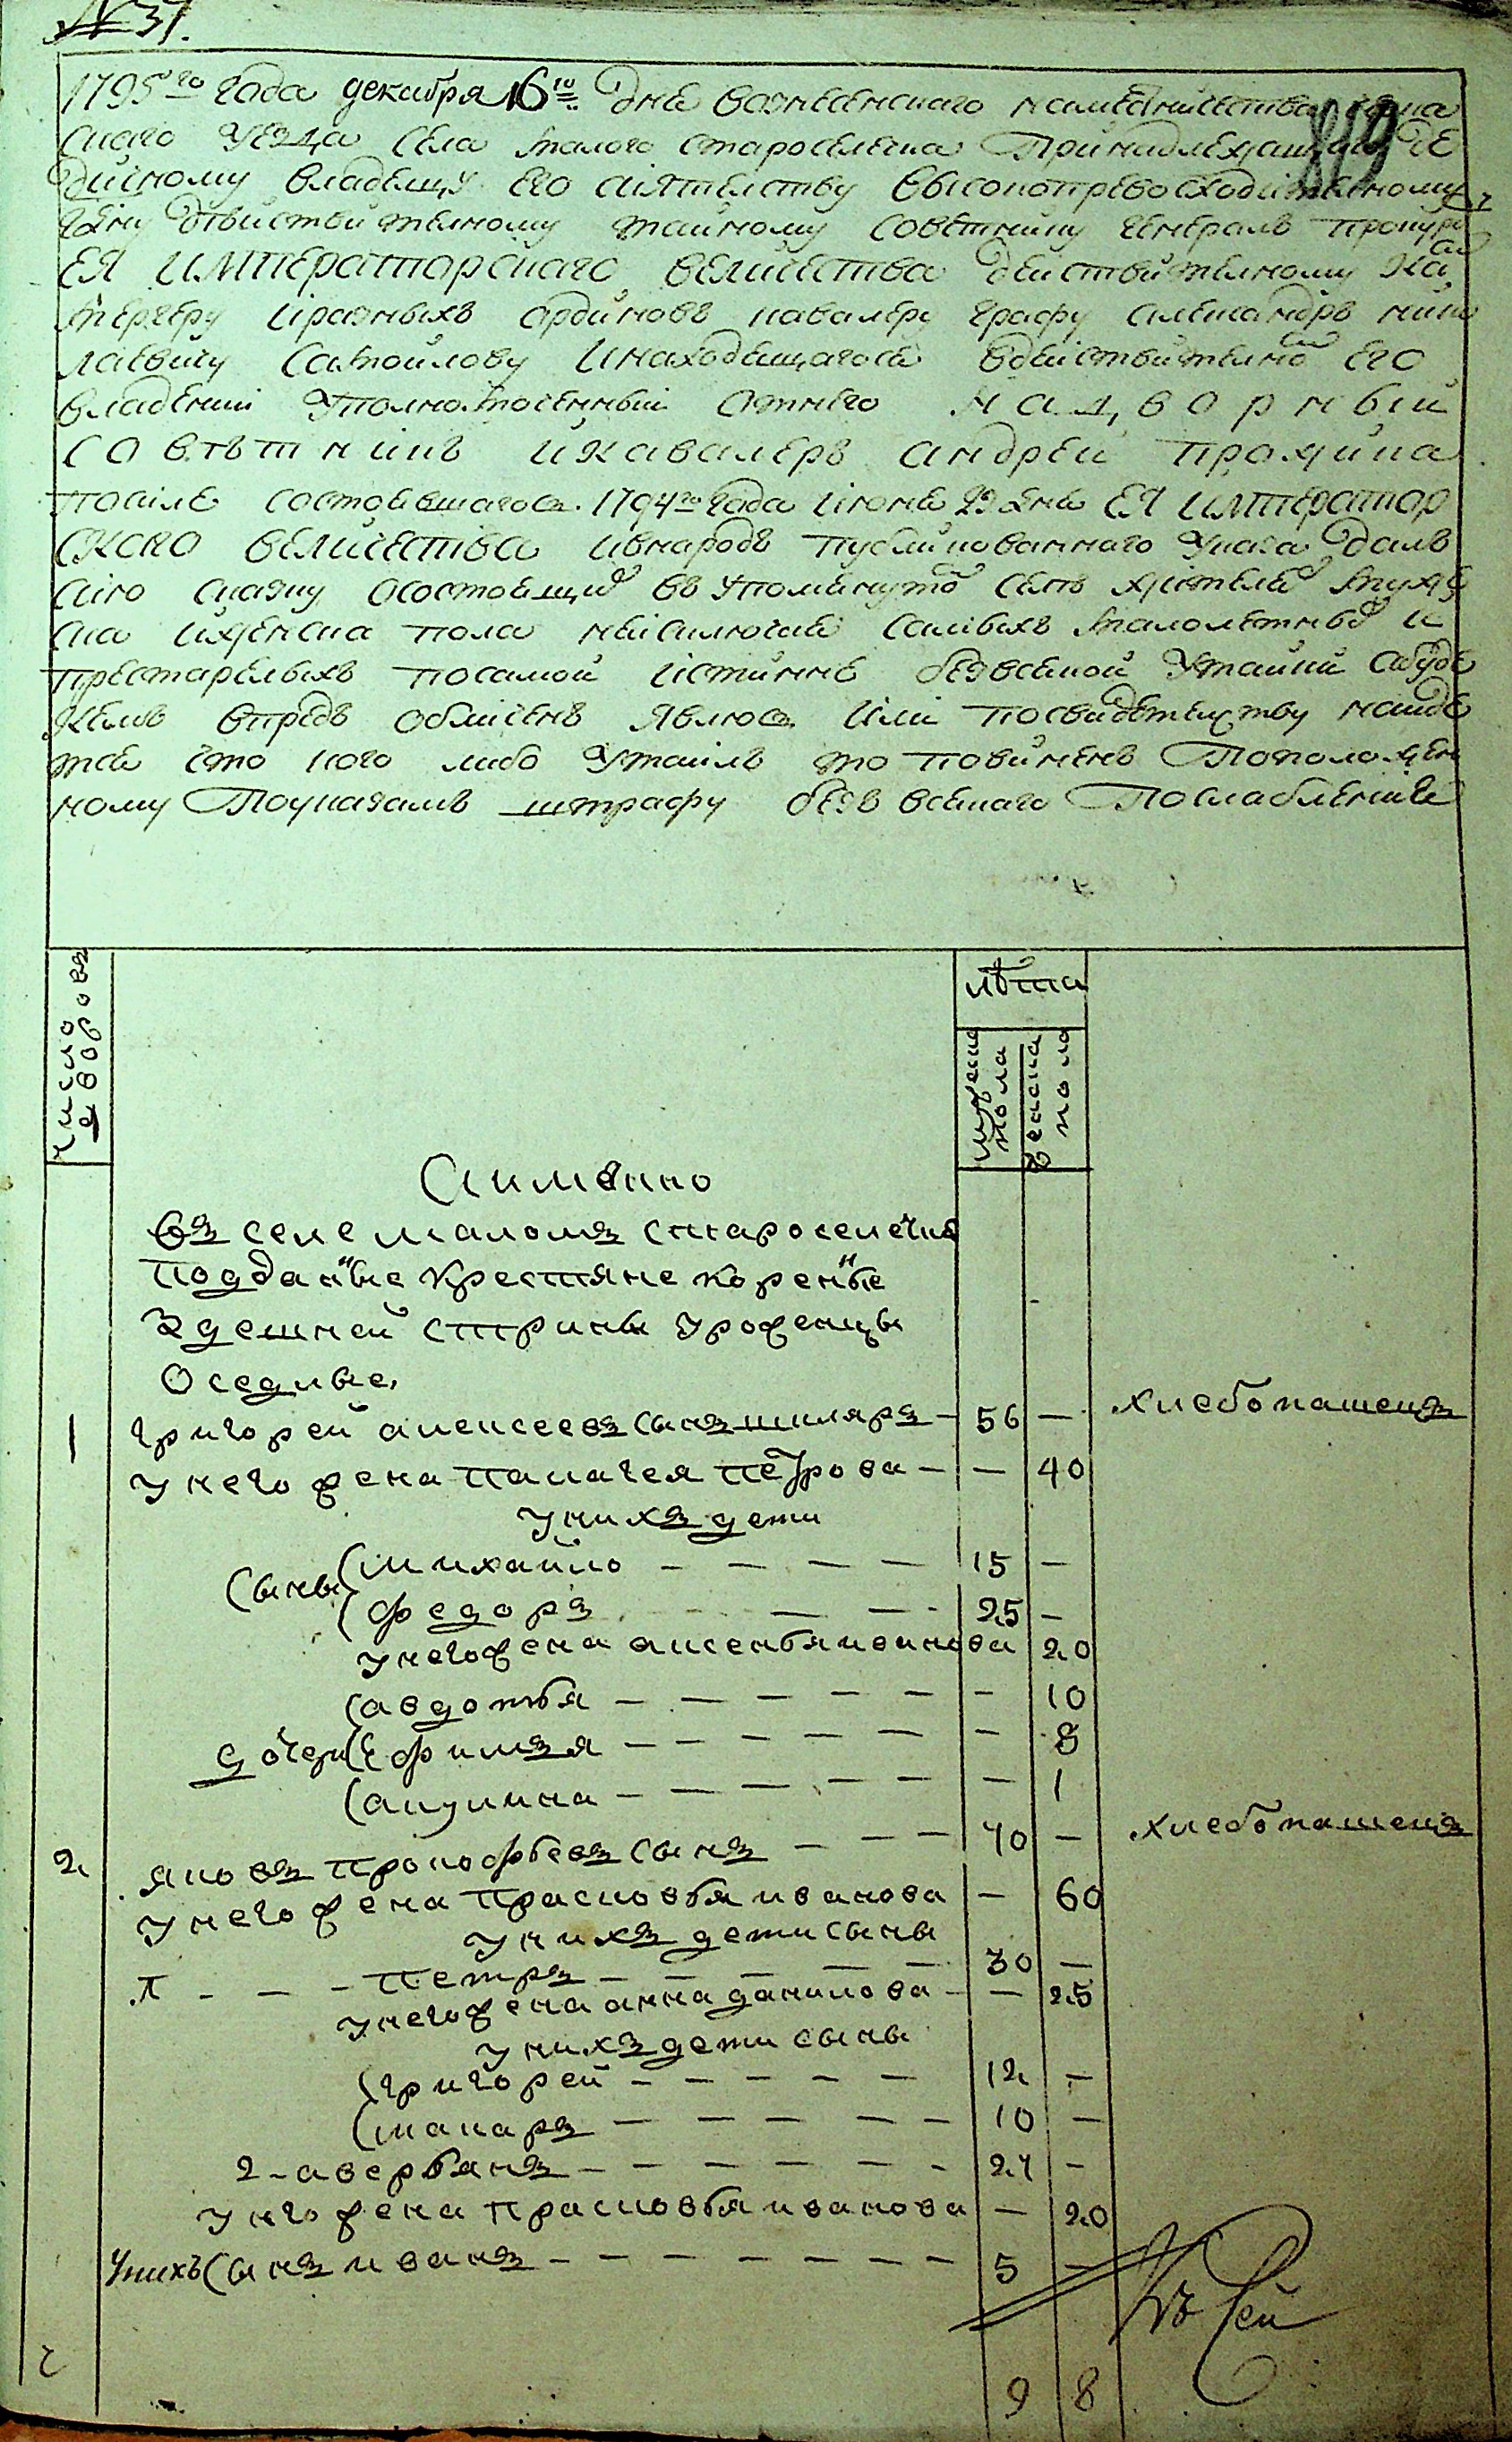 № 37.
819
1795го года декабря 16го дня вознесенскаго наместничества
скаго уезда села малого староселечка принадлежащаго де
дичному владелцу его сиятелству высокопревосходителному
гдну двиствителному тайному советнику генералъ прокуро
ЕЯ ИМПЕРАТОРСКАГО величества действителному Ка
мергеру и разныхъ ардиновъ кавалеру графу александръ нико
лаевичу самойлову и находящагося вдействителномъ его
владении уполномоченный отнего надворный
советникъ и Кавалеръ андрей
после состоявшагося 1794го года июня 23 дня ЕЯ ИМПЕРАТОР
СКОГО величества и внародъ публикованнаго указа далъ
сию сказку о состоящихъ въ упомянутомъ селе жителей мужес
ка и женска пола не исключая самыхъ малолетныхъ и
престарелыхъ по самой истинне безвсякой утайки а буде
кемъ впредь обличенъ явлюся или по свидетелству найде
тся что кого либо утаилъ то повиненъ положен
ному по указамъ штрафу безъ всякаго послабления
число дворовъ
лѣта
мужеска пола
женска пола
А имянно
въ селе маломъ староселечке
подданные крестяне коренные
здешней строны уроженцы
оседлые
1 григорей алексеевъ сынъ шкляръ – 56 – хлебопашецъ
у него жена палагея петрова – – 40
у нихъ дети
сыны (михайло – – – – 15 –
(федоръ – – – 25 –
у него жена аксенья иванова 20
(авдотья – – – – – – 10
дочери (ефимъя – – – – – – 8
(акулина – – – – – – 1
2 яковъ прокофьевъ сынъ – – – 70 – хлебопашецъ
у него жена прасковья иванова – 60
у нихъ дети сыны
1 – – – петръ – – – – 30 –
у него жена анна данилова – – 25
у нихъ дети сыны
(григорей – – – – – 12 –
(макаръ – – – – – 10 –
2 – аверьянъ – – – – – – 27 –
у нго жена прасковья иванова – 20
у нихъ сынъ иванъ – – – – – – – 5 –
9 8